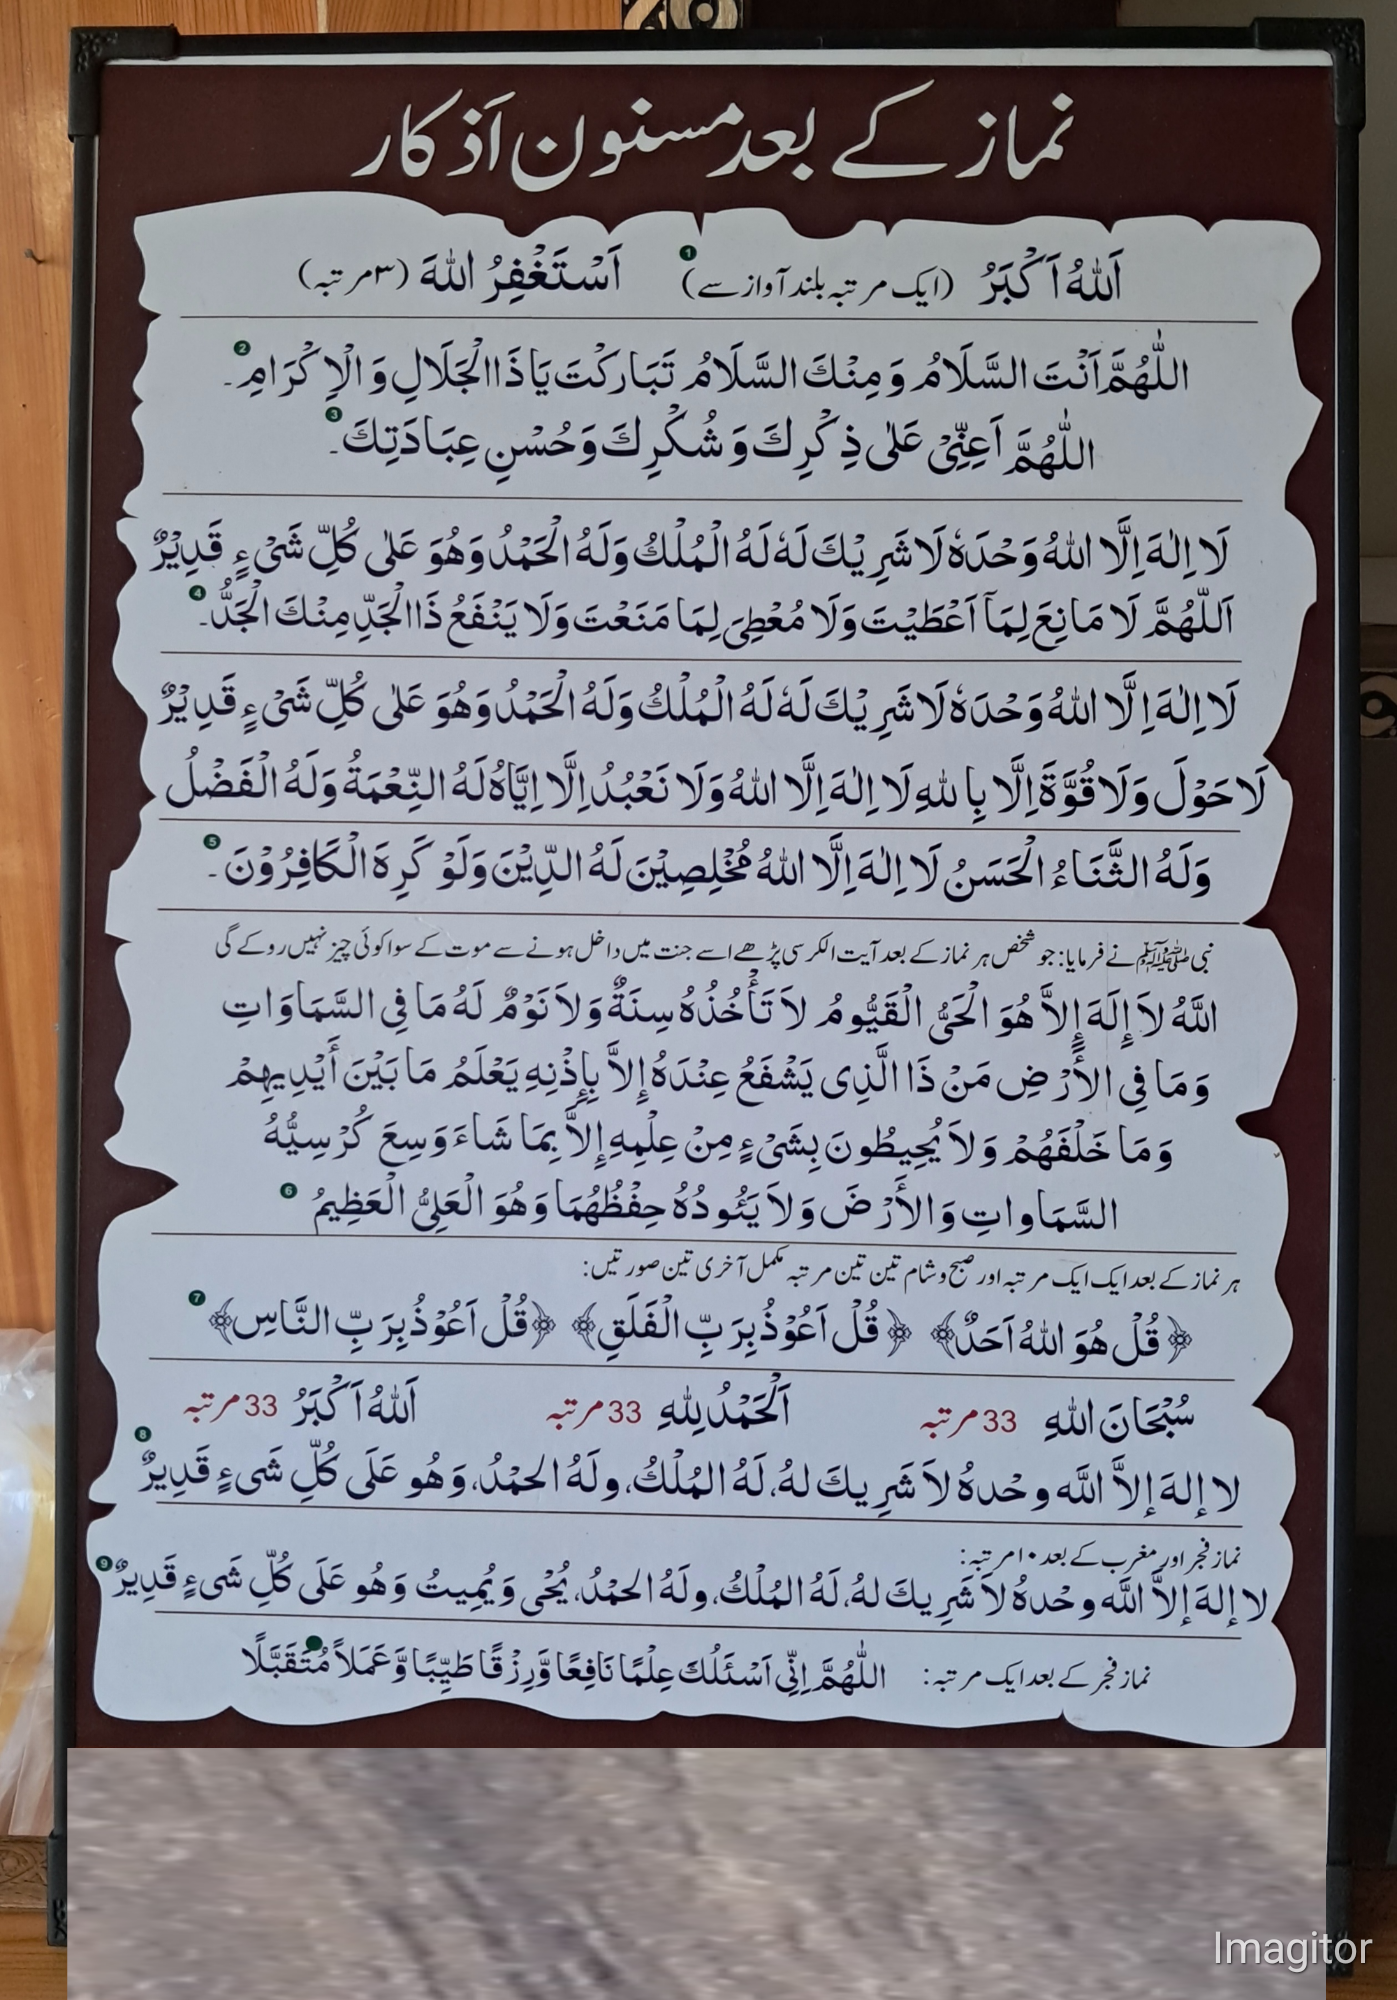 نماز کے بعد مسنون اَذکار
اَللہُ اَکْبَرُ (ایک مرتبہ بلند آواز سے) 1 اَسْتَغْفِرُ اللہَ (۳مرتبہ)
اللّٰهُمَّ اَنْتَ السَّلَامُ وَمِنْكَ السَّلَامُ تَبَارَكْتَ يَا ذَا الْجَلَالِ وَ الْاِكْرَامِ۔ 2
اللّٰهُمَّ اَعِنِّیْ عَلٰی ذِكْرِكَ وَ شُكْرِكَ وَحُسْنِ عِبَادَتِكَ۔ 3
لَا اِلٰهَ اِلَّا اللهُ وَحْدَهٗ لَا شَرِيْكَ لَهٗ لَهُ الْمُلْكُ وَلَهُ الْحَمْدُ وَهُوَ عَلٰی كُلِّ شَیْءٍ قَدِيْرٌ
اَللّٰهُمَّ لَا مَانِعَ لِمَآ اَعْطَيْتَ وَلَا مُعْطِیَ لِمَا مَنَعْتَ وَلَا يَنْفَعُ ذَا الْجَدِّ مِنْكَ الْجَدُّ۔ 4
لَا اِلٰهَ اِلَّا اللهُ وَحْدَهٗ لَا شَرِيْكَ لَهٗ لَهُ الْمُلْكُ وَلَهُ الْحَمْدُ وَهُوَ عَلٰی كُلِّ شَیْءٍ قَدِيْرٌ
لَا حَوْلَ وَلَا قُوَّةَ اِلَّا بِاللهِ لَا اِلٰهَ اِلَّا اللهُ وَلَا نَعْبُدُ اِلَّا اِيَّاهُ لَهُ النِّعْمَةُ وَلَهُ الْفَضْلُ
وَلَهُ الثَّنَاءُ الْحَسَنُ لَا اِلٰهَ اِلَّا اللهُ مُخْلِصِيْنَ لَهُ الدِّيْنَ وَلَوْ كَرِهَ الْكَافِرُوْنَ۔ 5
نبی ﷺ نے فرمایا: جو شخص ہر نماز کے بعد آیت الکرسی پڑھے اسے جنت میں داخل ہونے سے موت کے سوا کوئی چیز نہیں روکے گی
اللَّهُ لاَ إِلَهَ إِلاَّ هُوَ الْحَیُّ الْقَيُّومُ لاَ تَأْخُذُهُ سِنَةٌ وَلاَ نَوْمٌ لَهُ مَا فِی السَّمَاوَاتِ
وَمَا فِی الأَرْضِ مَنْ ذَا الَّذِی يَشْفَعُ عِنْدَهُ إِلاَّ بِإِذْنِهِ يَعْلَمُ مَا بَيْنَ أَيْدِيهِمْ
وَمَا خَلْفَهُمْ وَلاَ يُحِيطُونَ بِشَیْءٍ مِنْ عِلْمِهِ إِلاَّ بِمَا شَاءَ وَسِعَ كُرْسِيُّهُ
السَّمَاواتِ وَالأَرْضَ وَلاَ يَئُودُهُ حِفْظُهُمَا وَهُوَ الْعَلِیُّ الْعَظِيمُ 6
ہر نماز کے بعد ایک ایک مرتبہ اور صبح و شام تین تین مرتبہ مکمل آخری تین صورتیں:
﴿قُلْ هُوَ اللهُ اَحَدٌ﴾ ﴿قُلْ اَعُوْذُ بِرَبِّ الْفَلَقِ﴾ ﴿قُلْ اَعُوْذُ بِرَبِّ النَّاسِ﴾ 7
سُبْحَانَ اللهِ 33 مرتبہ اَلْحَمْدُ لِلّٰهِ 33 مرتبہ اَللهُ اَكْبَرُ 33 مرتبہ
لا إلهَ إلاَّ اللَّه وحْدهُ لاَ شَرِيكَ لهُ، لَهُ المُلْكُ، ولَهُ الحمْدُ، وَهُو عَلَى كُلِّ شَیءٍ قَدِيرٌ 8
نماز فجر اور مغرب کے بعد ۱۰ مرتبہ:
لا إلهَ إلاَّ اللَّه وحْدهُ لاَ شَرِيكَ لهُ، لَهُ المُلْكُ، ولَهُ الحمْدُ، يُحْی وَيُمِيتُ وَهُو عَلَى كُلِّ شَیءٍ قَدِيرٌ 9
نماز فجر کے بعد ایک مرتبہ: اللّٰهُمَّ اِنِّیْ اَسْئَلُكَ عِلْمًا نَافِعًا وَّرِزْقًا طَيِّبًا وَّعَمَلاً مُتَقَبَّلًا
Imagitor